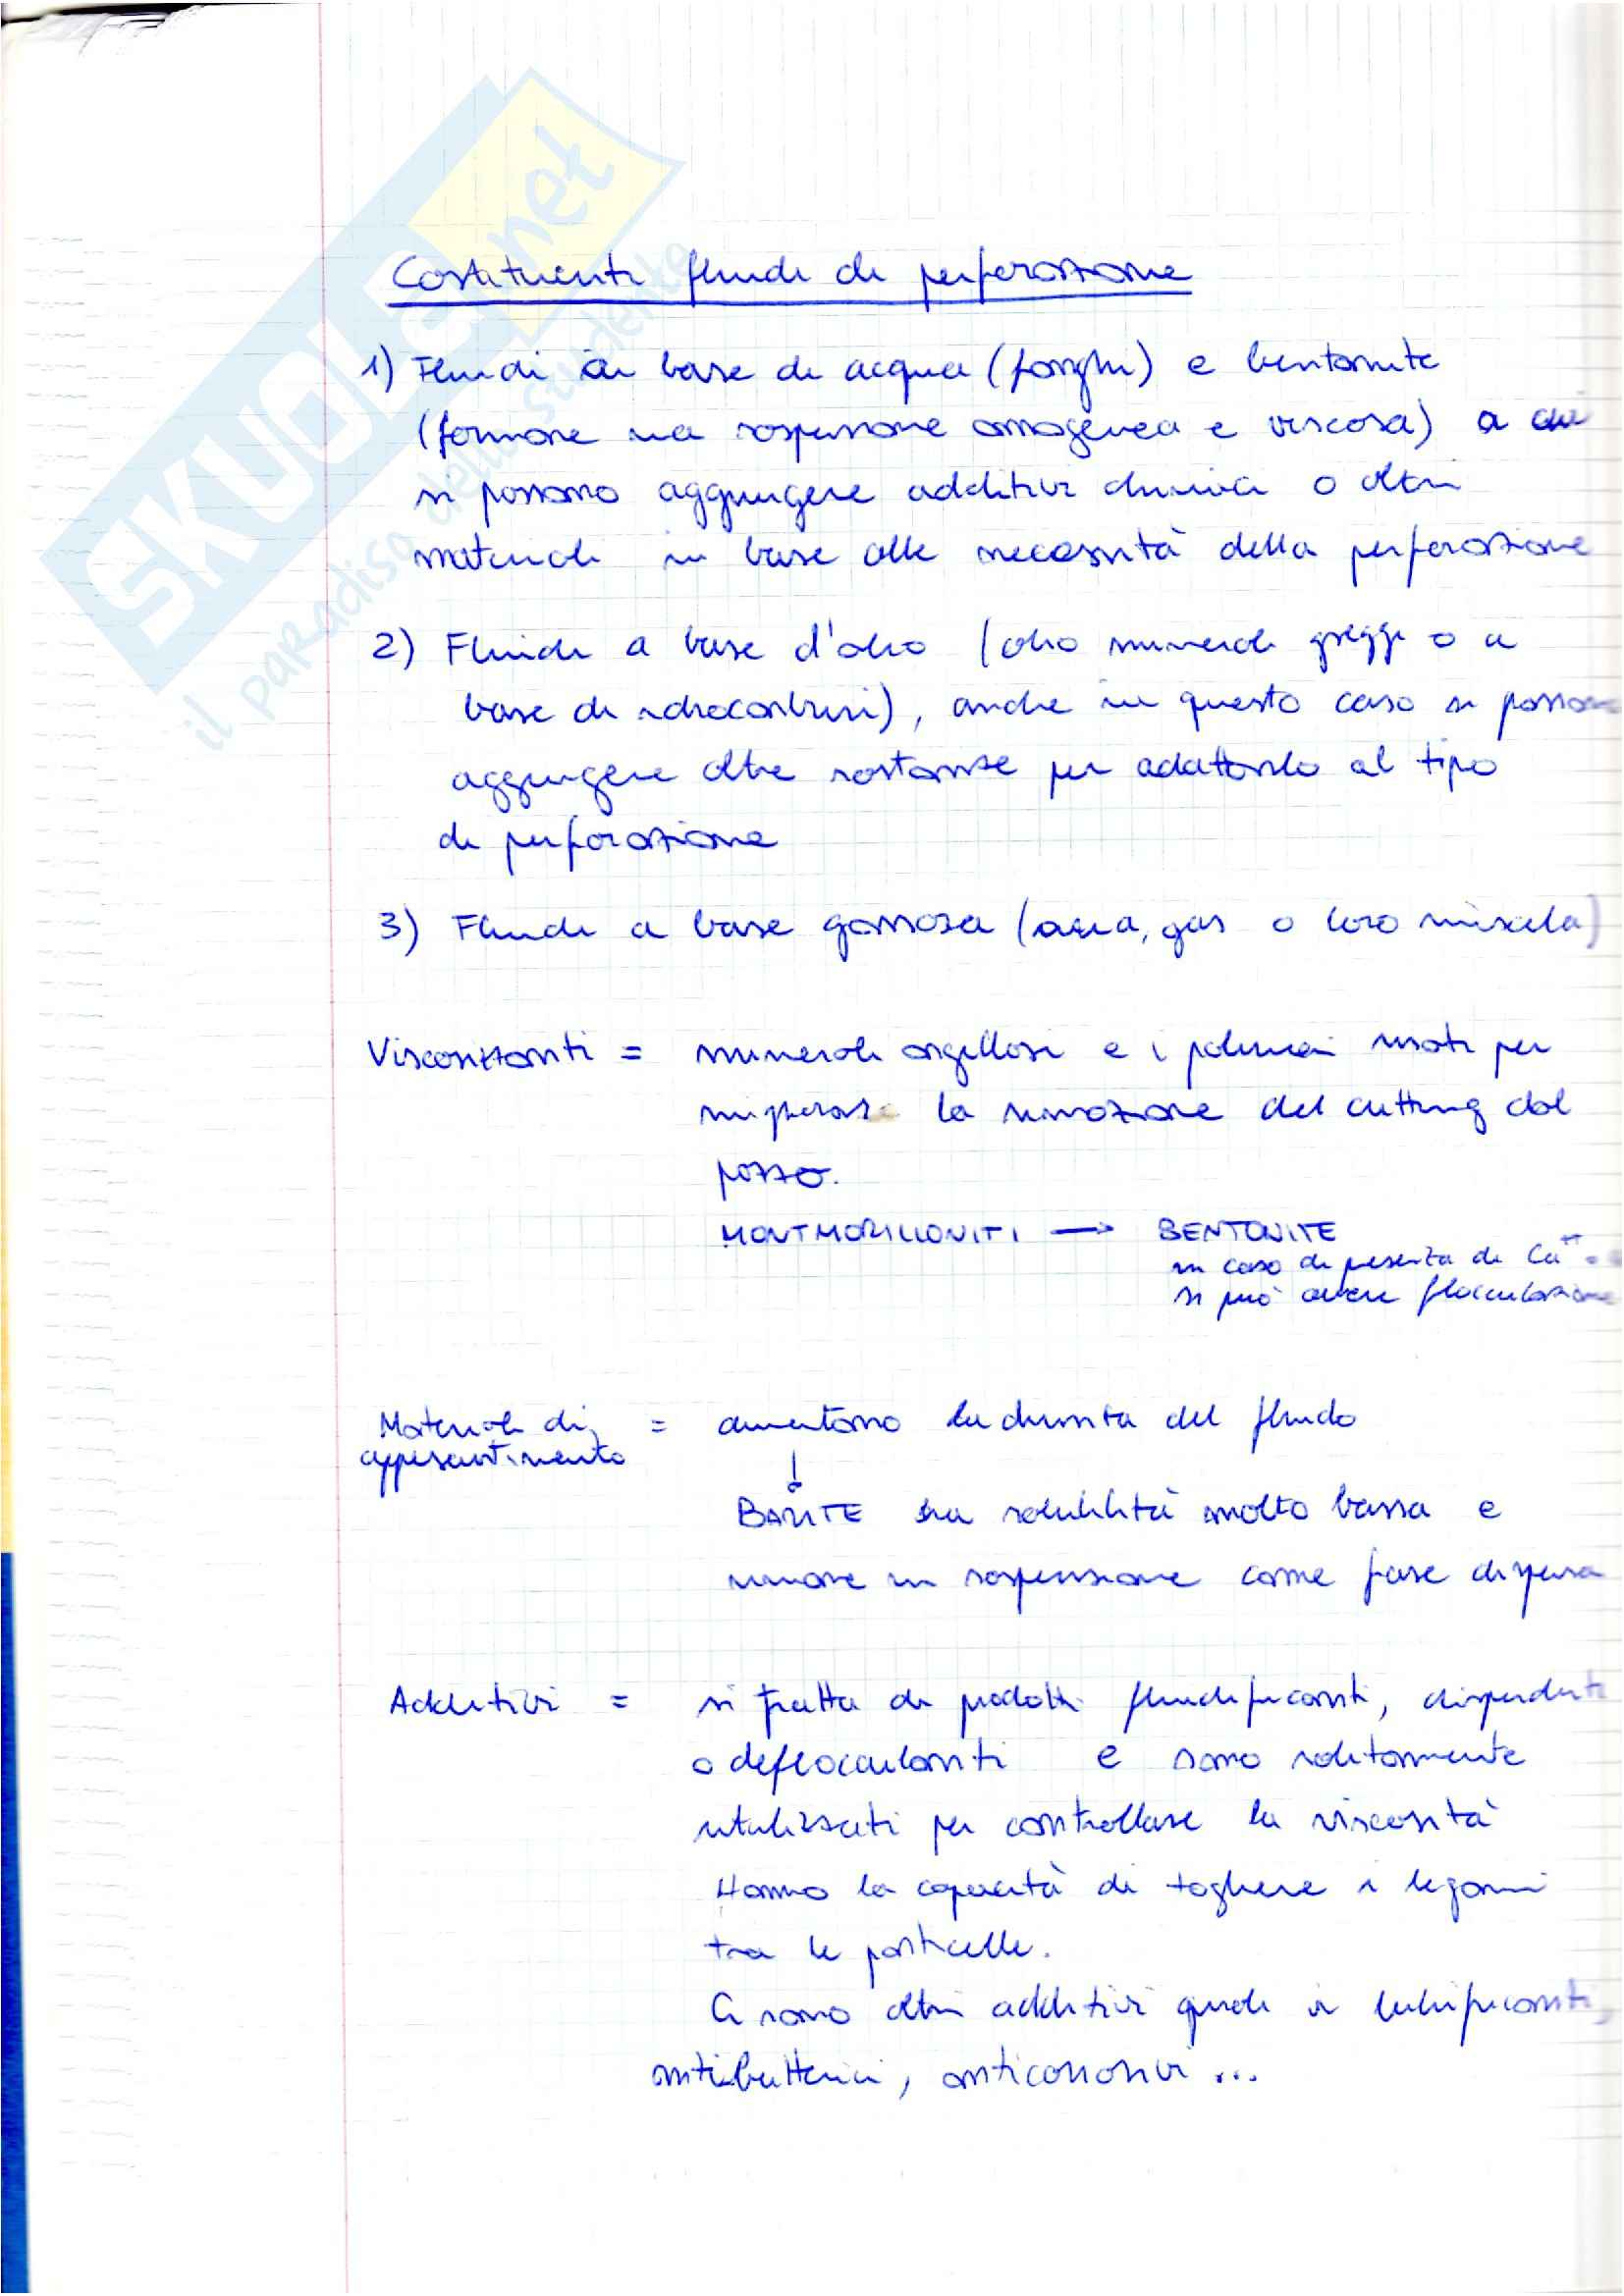 SKUOLA.net
il paradiso dello studente
Costituenti fluidi di perforazione
1) Fluidi a base di acqua (fanghi) e bentonite
(formano una sospensione omogenea e viscosa) a cui
si possono aggiungere additivi chimici o altri
materiali in base alle necessità della perforazione
2) Fluidi a base d'olio (olio minerali greggi o a
base di idrocarburi), anche in questo caso si possono
aggiungere altre sostanze per adattarlo al tipo
di perforazione
3) Fluidi a base gassosa (aria, gas o loro miscela)
Viscosizzanti = minerali argillosi e i polimeri usati per
migliorare la rimozione del cutting dal
pozzo.
MONTMORILLONITI → BENTONITE
in caso di presenza di Ca++
si può avere flocculazione
Materiali di = aumentano la densità del fluido
appesantimento
↓
BARITE ha solubilità molto bassa e
rimane in sospensione come fase dispersa
Additivi = si tratta di prodotti fluidificanti, disperdenti
o deflocculanti e sono solitamente
utilizzati per controllare la viscosità
Hanno la capacità di togliere i legami
tra le particelle.
Ci sono altri additivi quali i lubrificanti,
antibatterici, anticorrosivi ...